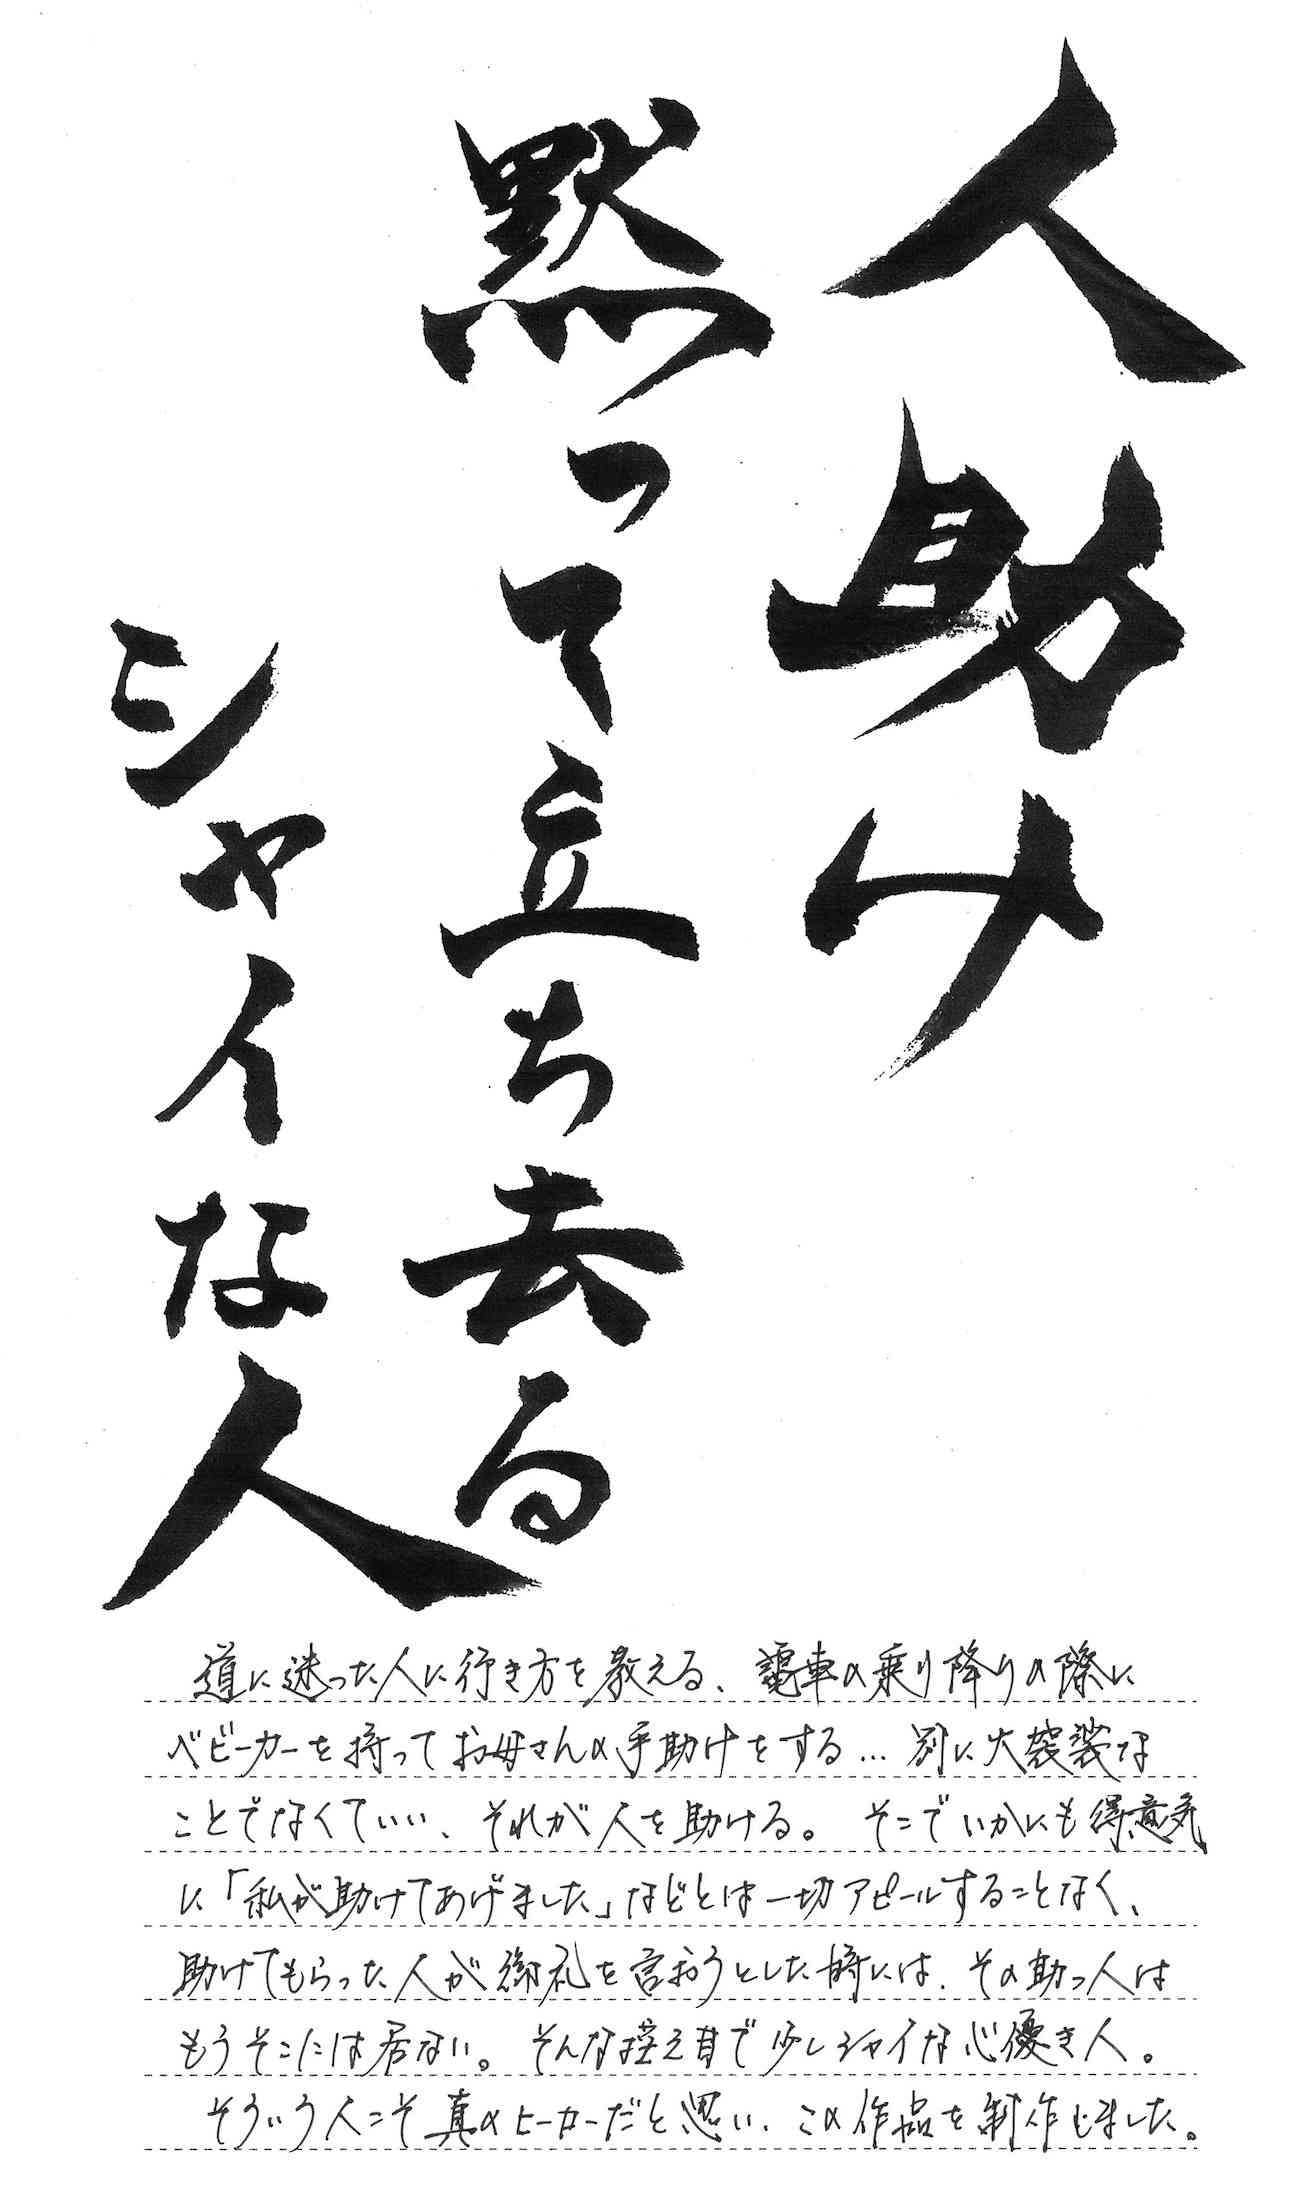 人助け
黙って立ち去る
シャイな人
道に迷った人に行き方を教える、電車の乗り降りの際に
ベビーカーを持ってお母さんの手助けをする…別に大袈裟な
ことでなくていい、それが人を助ける。そこでいかにも得意気
に「私が助けてあげました」などとは一切アピールすることなく、
助けてもらった人が御礼を言おうとした時には、その助っ人は
もうそこには居ない。そんな控え目で少しシャイな心優き人。
そういう人こそ真のヒーローだと思い、この作品を制作しました。